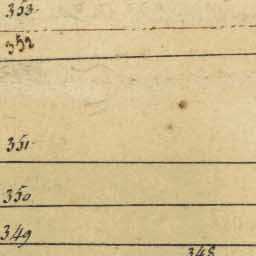 353.
352
351.
350
349
348